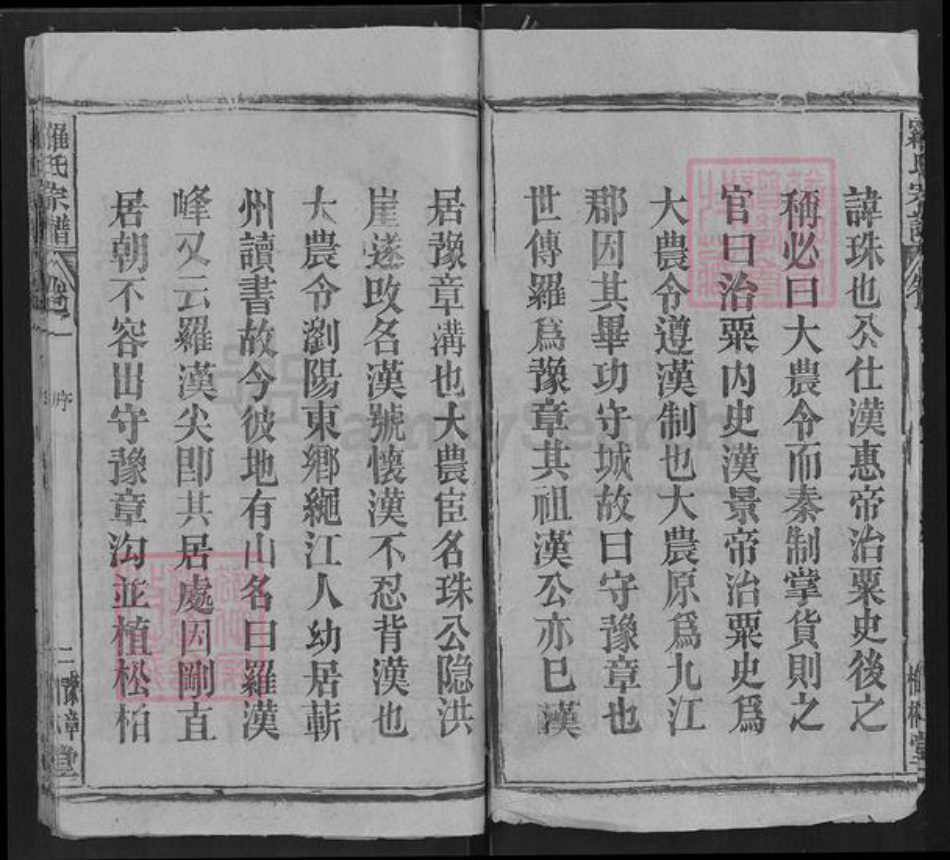 諱珠也公仕漢惠帝治粟史後之
稱必曰大農令而秦制掌貨則之
官曰治粟内史漢景帝治粟史爲
大農令遵漢制也大農原爲九江
郡因其畢功守城故曰守豫章也
世傳羅爲豫章其祖漢公亦巳漢
居豫章溝也大農臣名珠公隐洪
崖遂攺名漢號懷漢不忍背漢也
大農令瀏陽東鄉繩江人幼居蘄
州讀書故今彼地有山名曰羅漢
峰又云羅漢尖卽其居處因剛直
居朝不容出守豫章沟並植松柏
羅氏宗譜
卷一
序
二
豫章堂